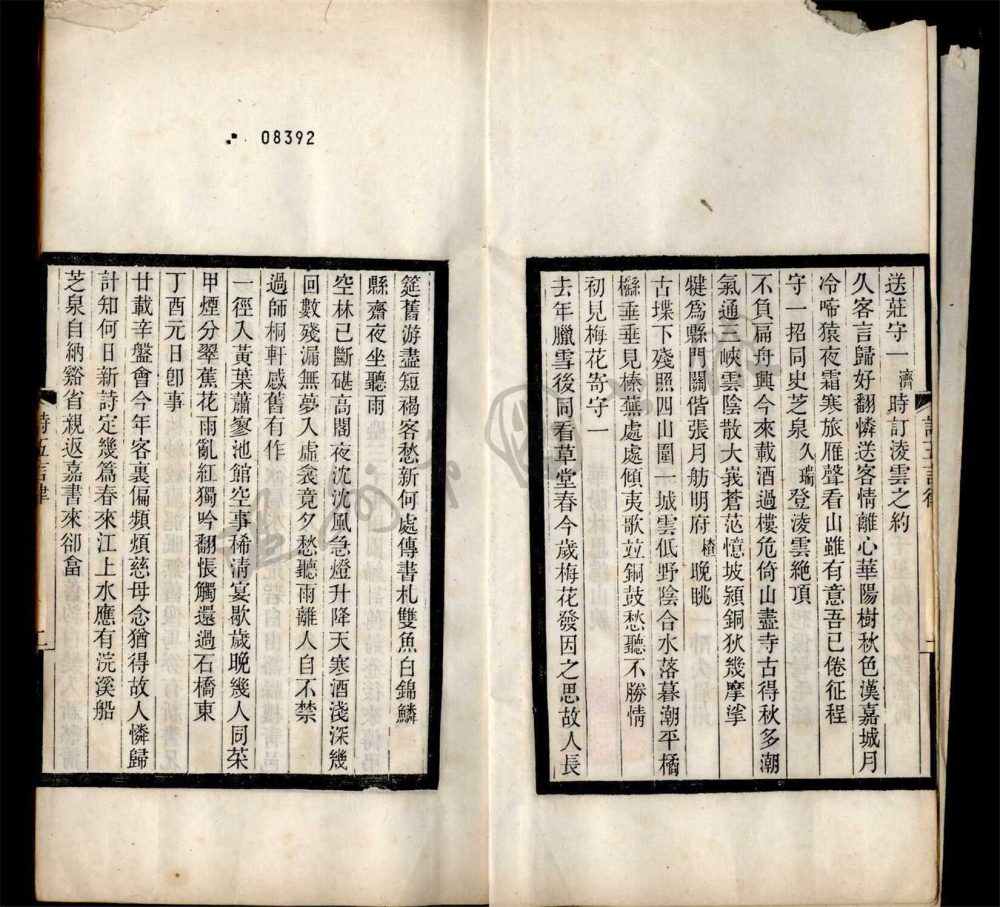 送莊守一濟時訂淩雲之約
久客言歸好翻憐送客情離心華陽樹秋色漢嘉城月
冷啼猿夜霜寒旅雁聲看山雖有意吾已倦征程
守一招同史芝泉久瑞登淩雲絶頂
不負扁舟興今來載酒過樓危倚山盡寺古得秋多潮
氣通三峽雲陰散大峩蒼茫憶坡潁銅狄幾摩挲
犍爲縣門關偕張月舫明府楂晚眺
古堞下殘照四山圍一城雲低野陰合水落暮潮平橘
櫾垂垂見榛蕪處處傾夷歌竝銅鼓愁聽不勝情
初見梅花寄守一
去年臘雪後同看草堂春今歲梅花發因之思故人長
筵舊游盡短褐客愁新何處傳書札雙魚白錦鱗
縣齋夜坐聽雨
空林已斷碪高閣夜沈沈風急燈升降天寒酒淺深幾
回數殘漏無夢入虛衾竟夕愁聽雨離人自不禁
過師桐軒感舊有作
一徑入黃葉蕭寥池館空事稀清宴歇歲晚幾人同茶
甲煙分翠蕉花雨亂紅獨吟翻悵觸還過石橋東
丁酉元日卽事
廿載辛盤會今年客裏偏頻煩慈母念猶得故人憐歸
計知何日新詩定幾篇春來江上水應有浣溪船
芝泉自納谿省親返嘉書來卻畣
詩五言律
二
08392